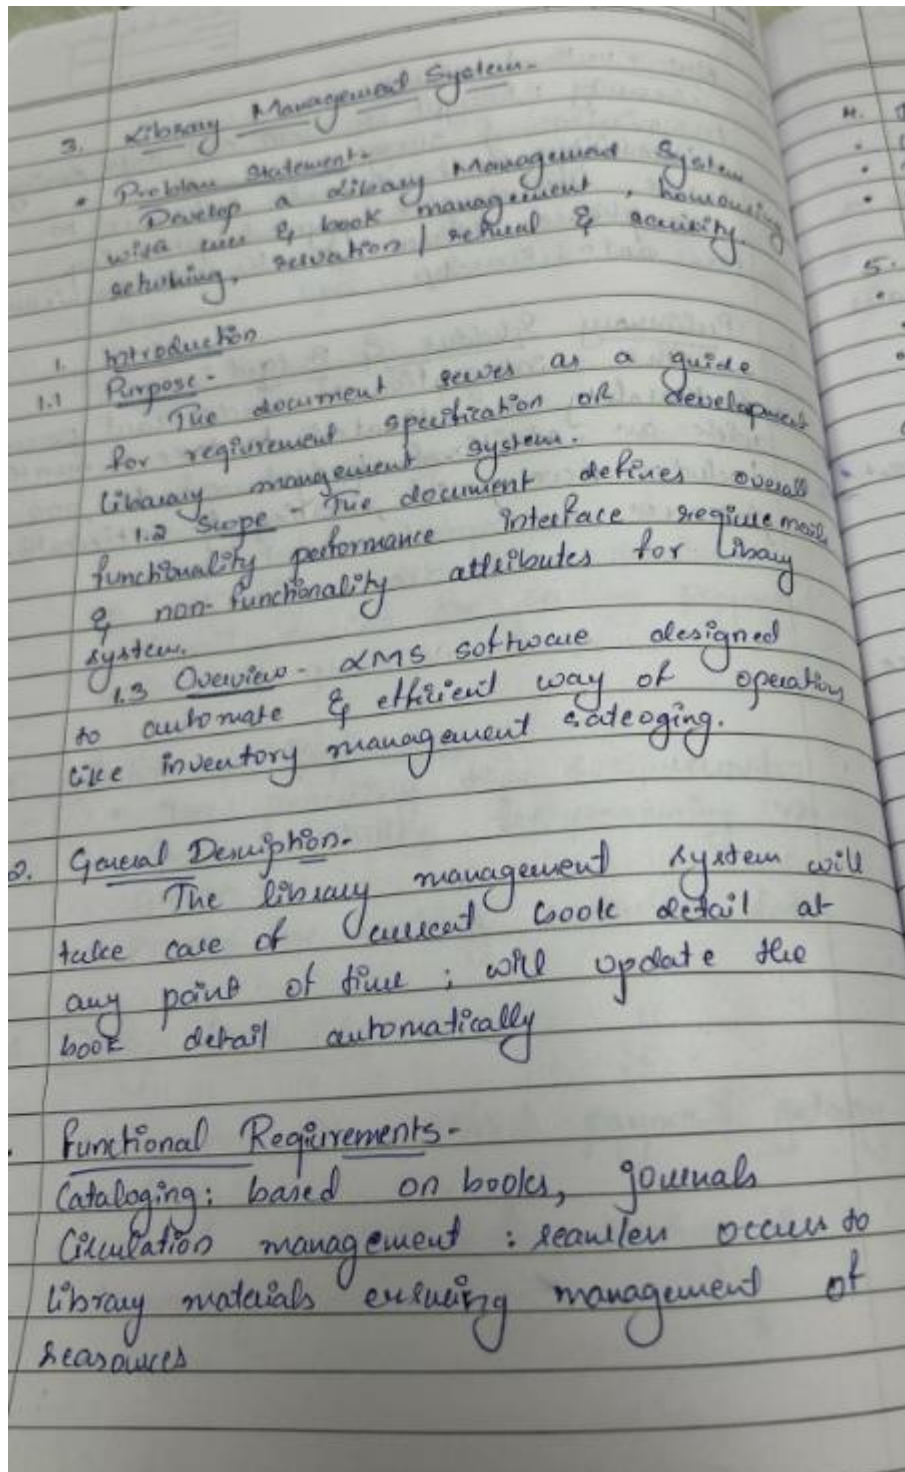 3. Library Management System-
• Problem Statement-
Develop a Library Management System
with user & book management, borrowing
returning, servation / retrieal & security.
1. Introduction
1.1 Purpose -
The document serves as a guide
for regiurement specification OR development
Libarary management system.
1.2 Scope - The document defines overall
functionality performance interface requirements
& non-functionality attributes for Libray
system.
1.3 Overview - LMS software designed
to automate & efficient way of operation
like inventory management cateoging.
2. General Description-
The library management system will
take care of current book detail at
any point of time ; will update the
book detail automatically
Functional Regiurements-
Cataloging: based on books, journals
Circulation management : seamless access to
library materials ensuring management of
reasources
M.
5.